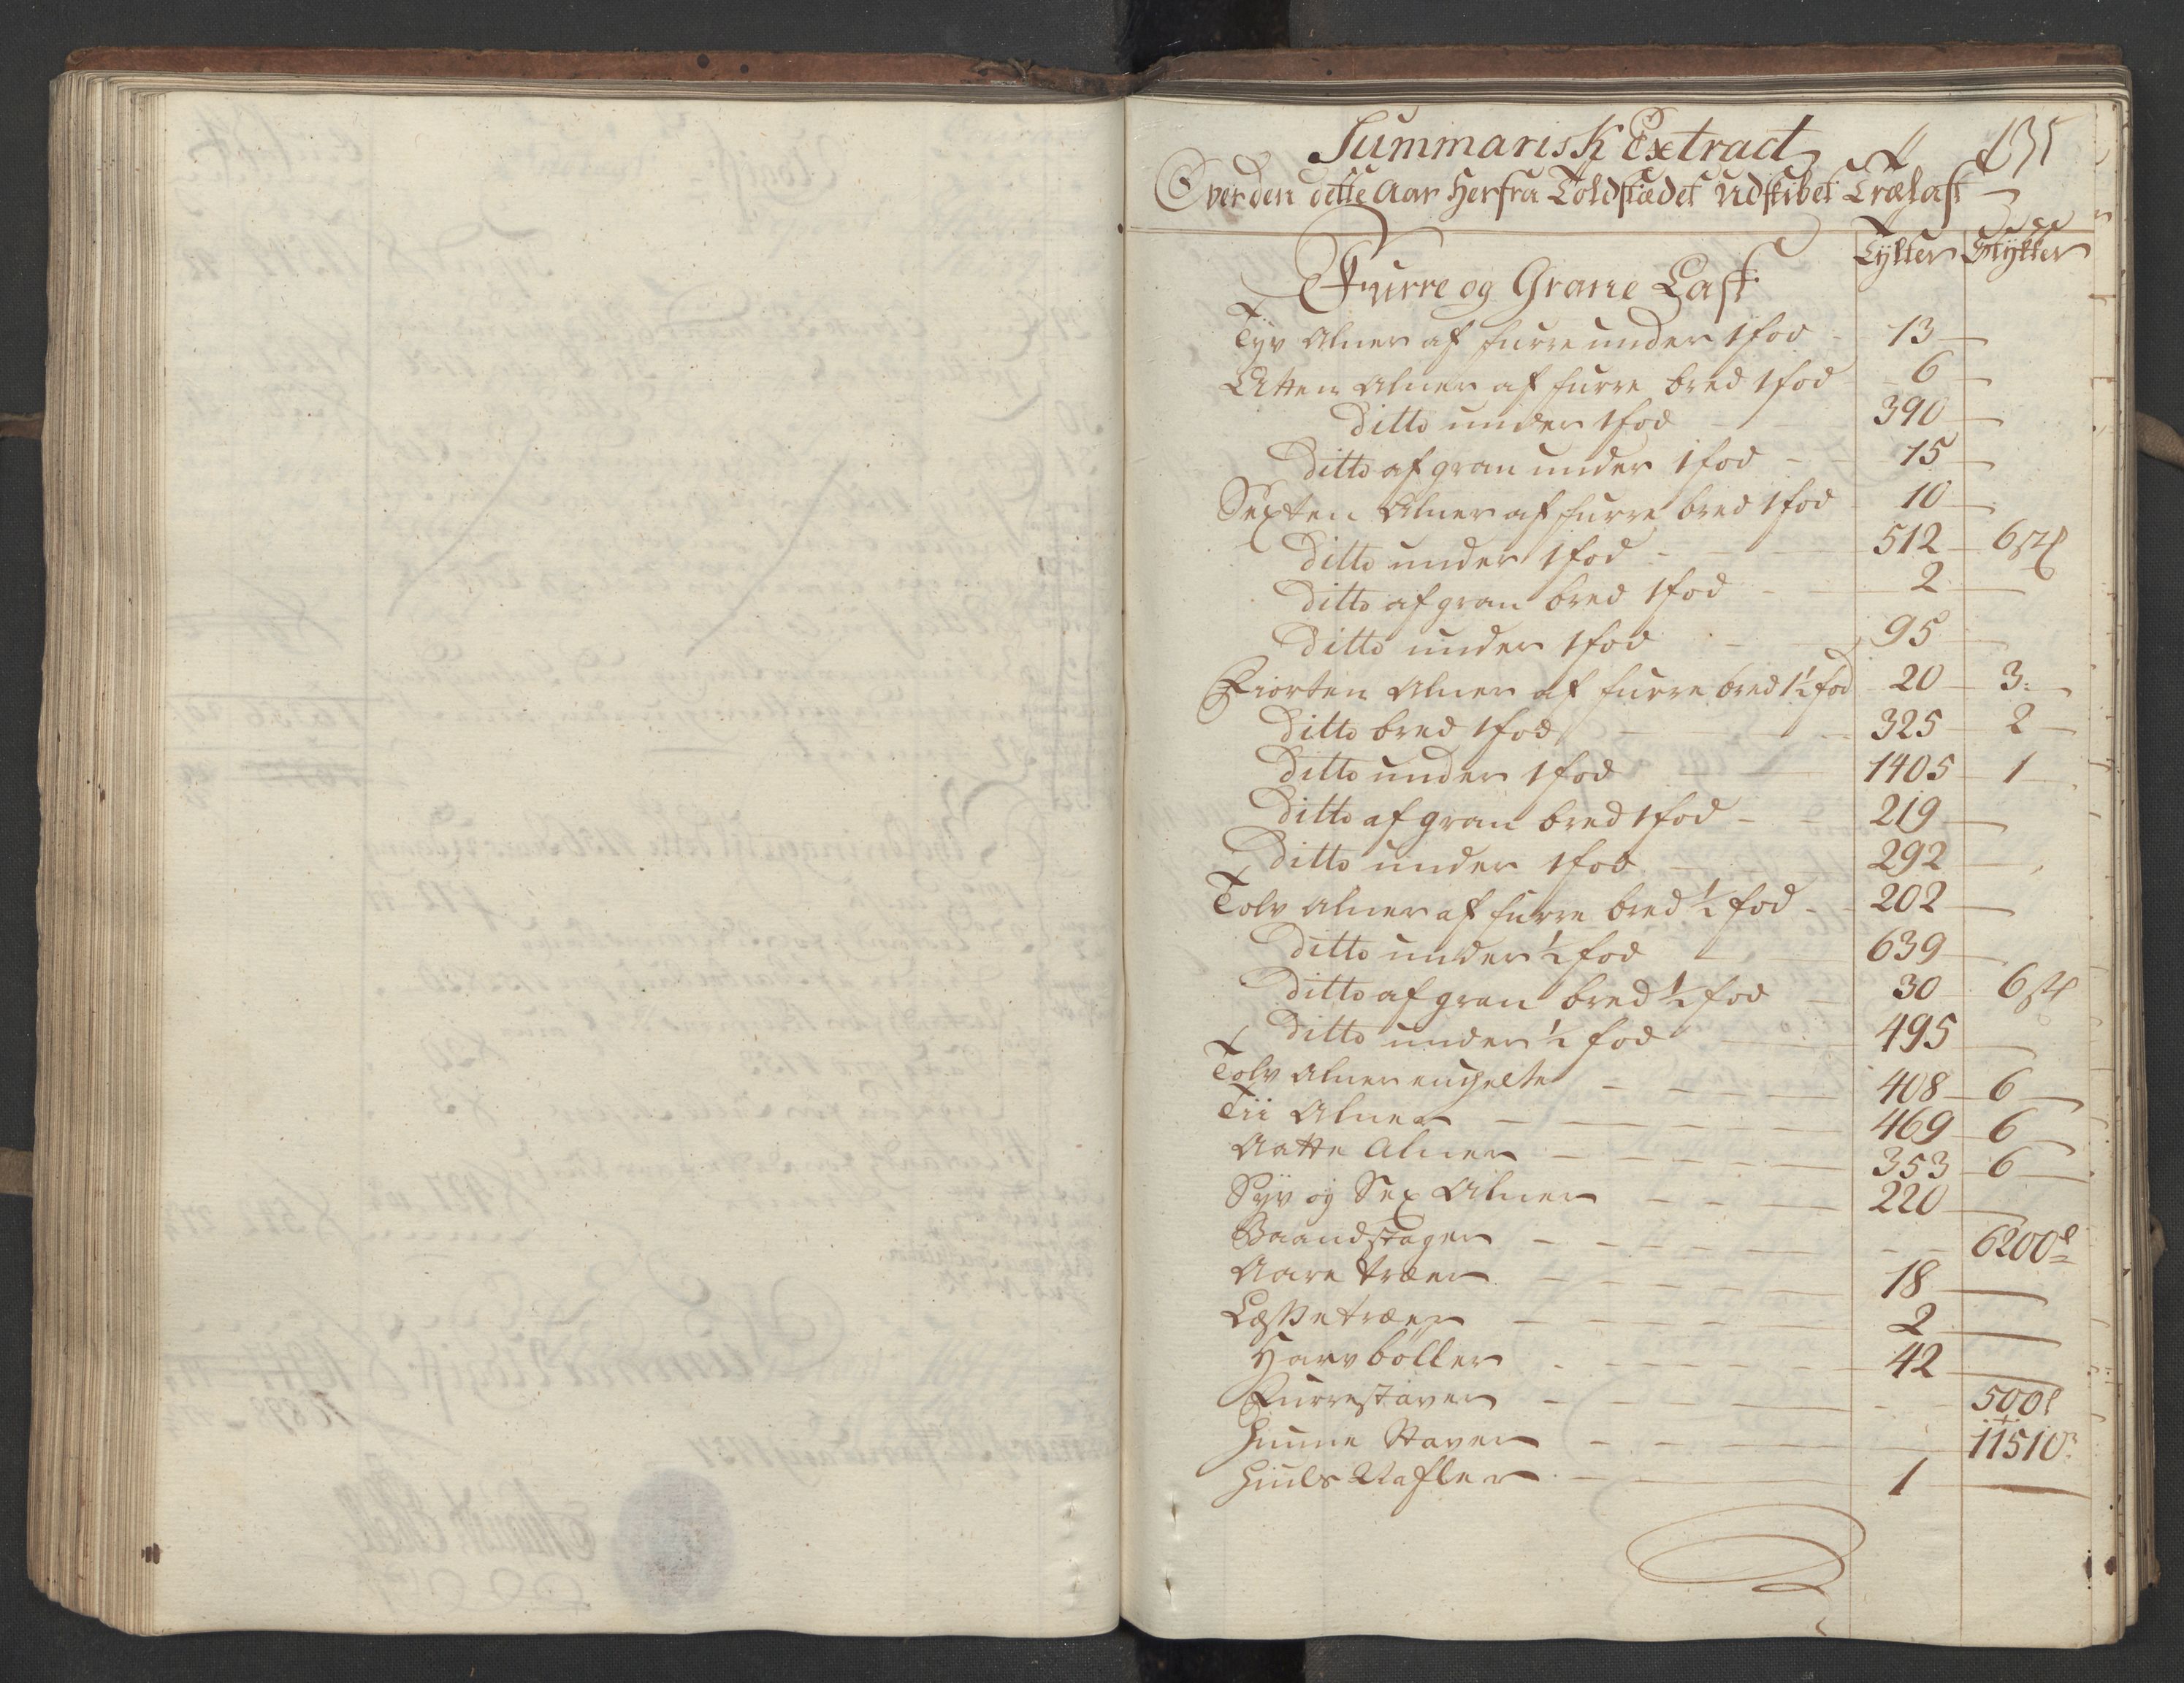 135
Summarisk Extract
Over den dette Aar Herfra Toldstædet Udskibet Trælast
Tylter Stÿkker
Furre og Grane Last
Tyv Alner af furre under 1 fod - 13 -
Atten Alner af furre bred 1 fod 6 -
Ditto under 1 fod - 390 -
Ditto af gran under 1 fod - - 15 -
Sexten Alner af furre bred 1 fod - 10 -
Ditto under 1 fod - - 512 - 6 st
Ditto af gran bred 1 fod - - 2 -
Ditto under 1 fod - - 95 -
Fiorten Alner af furre bred 1¼ fod - 20 - 3 -
Ditto bred 1 fod - - 325 - 2 -
Ditto under 1 fod - 1405 - 1
Ditto af gran bred 1 fod - - 219 -
Ditto under 1 fod - 292 -
Tolv Alner af furre bred ½ fod - - 202 -
Ditto under ½ fod - 639 -
Ditto af gran bred ½ fod - 30 - 6 st
Ditto under ½ fod - 495 -
Tolv Alner - - - 408 - 6 -
Tii Alner - - - - 469 - 6 -
Aatte Alner - - - - 353 - 6 -
Syv og Sex Alner - - - 220 -
Baandstager - - - - - 6200
Aare træer - - - - 18 -
træer - - - - 2 -
Harvböller - - - - 42 -
Furrestaver - - - - - 500
Tunne Staver - - - - 11510
Hiuls - - 1 -